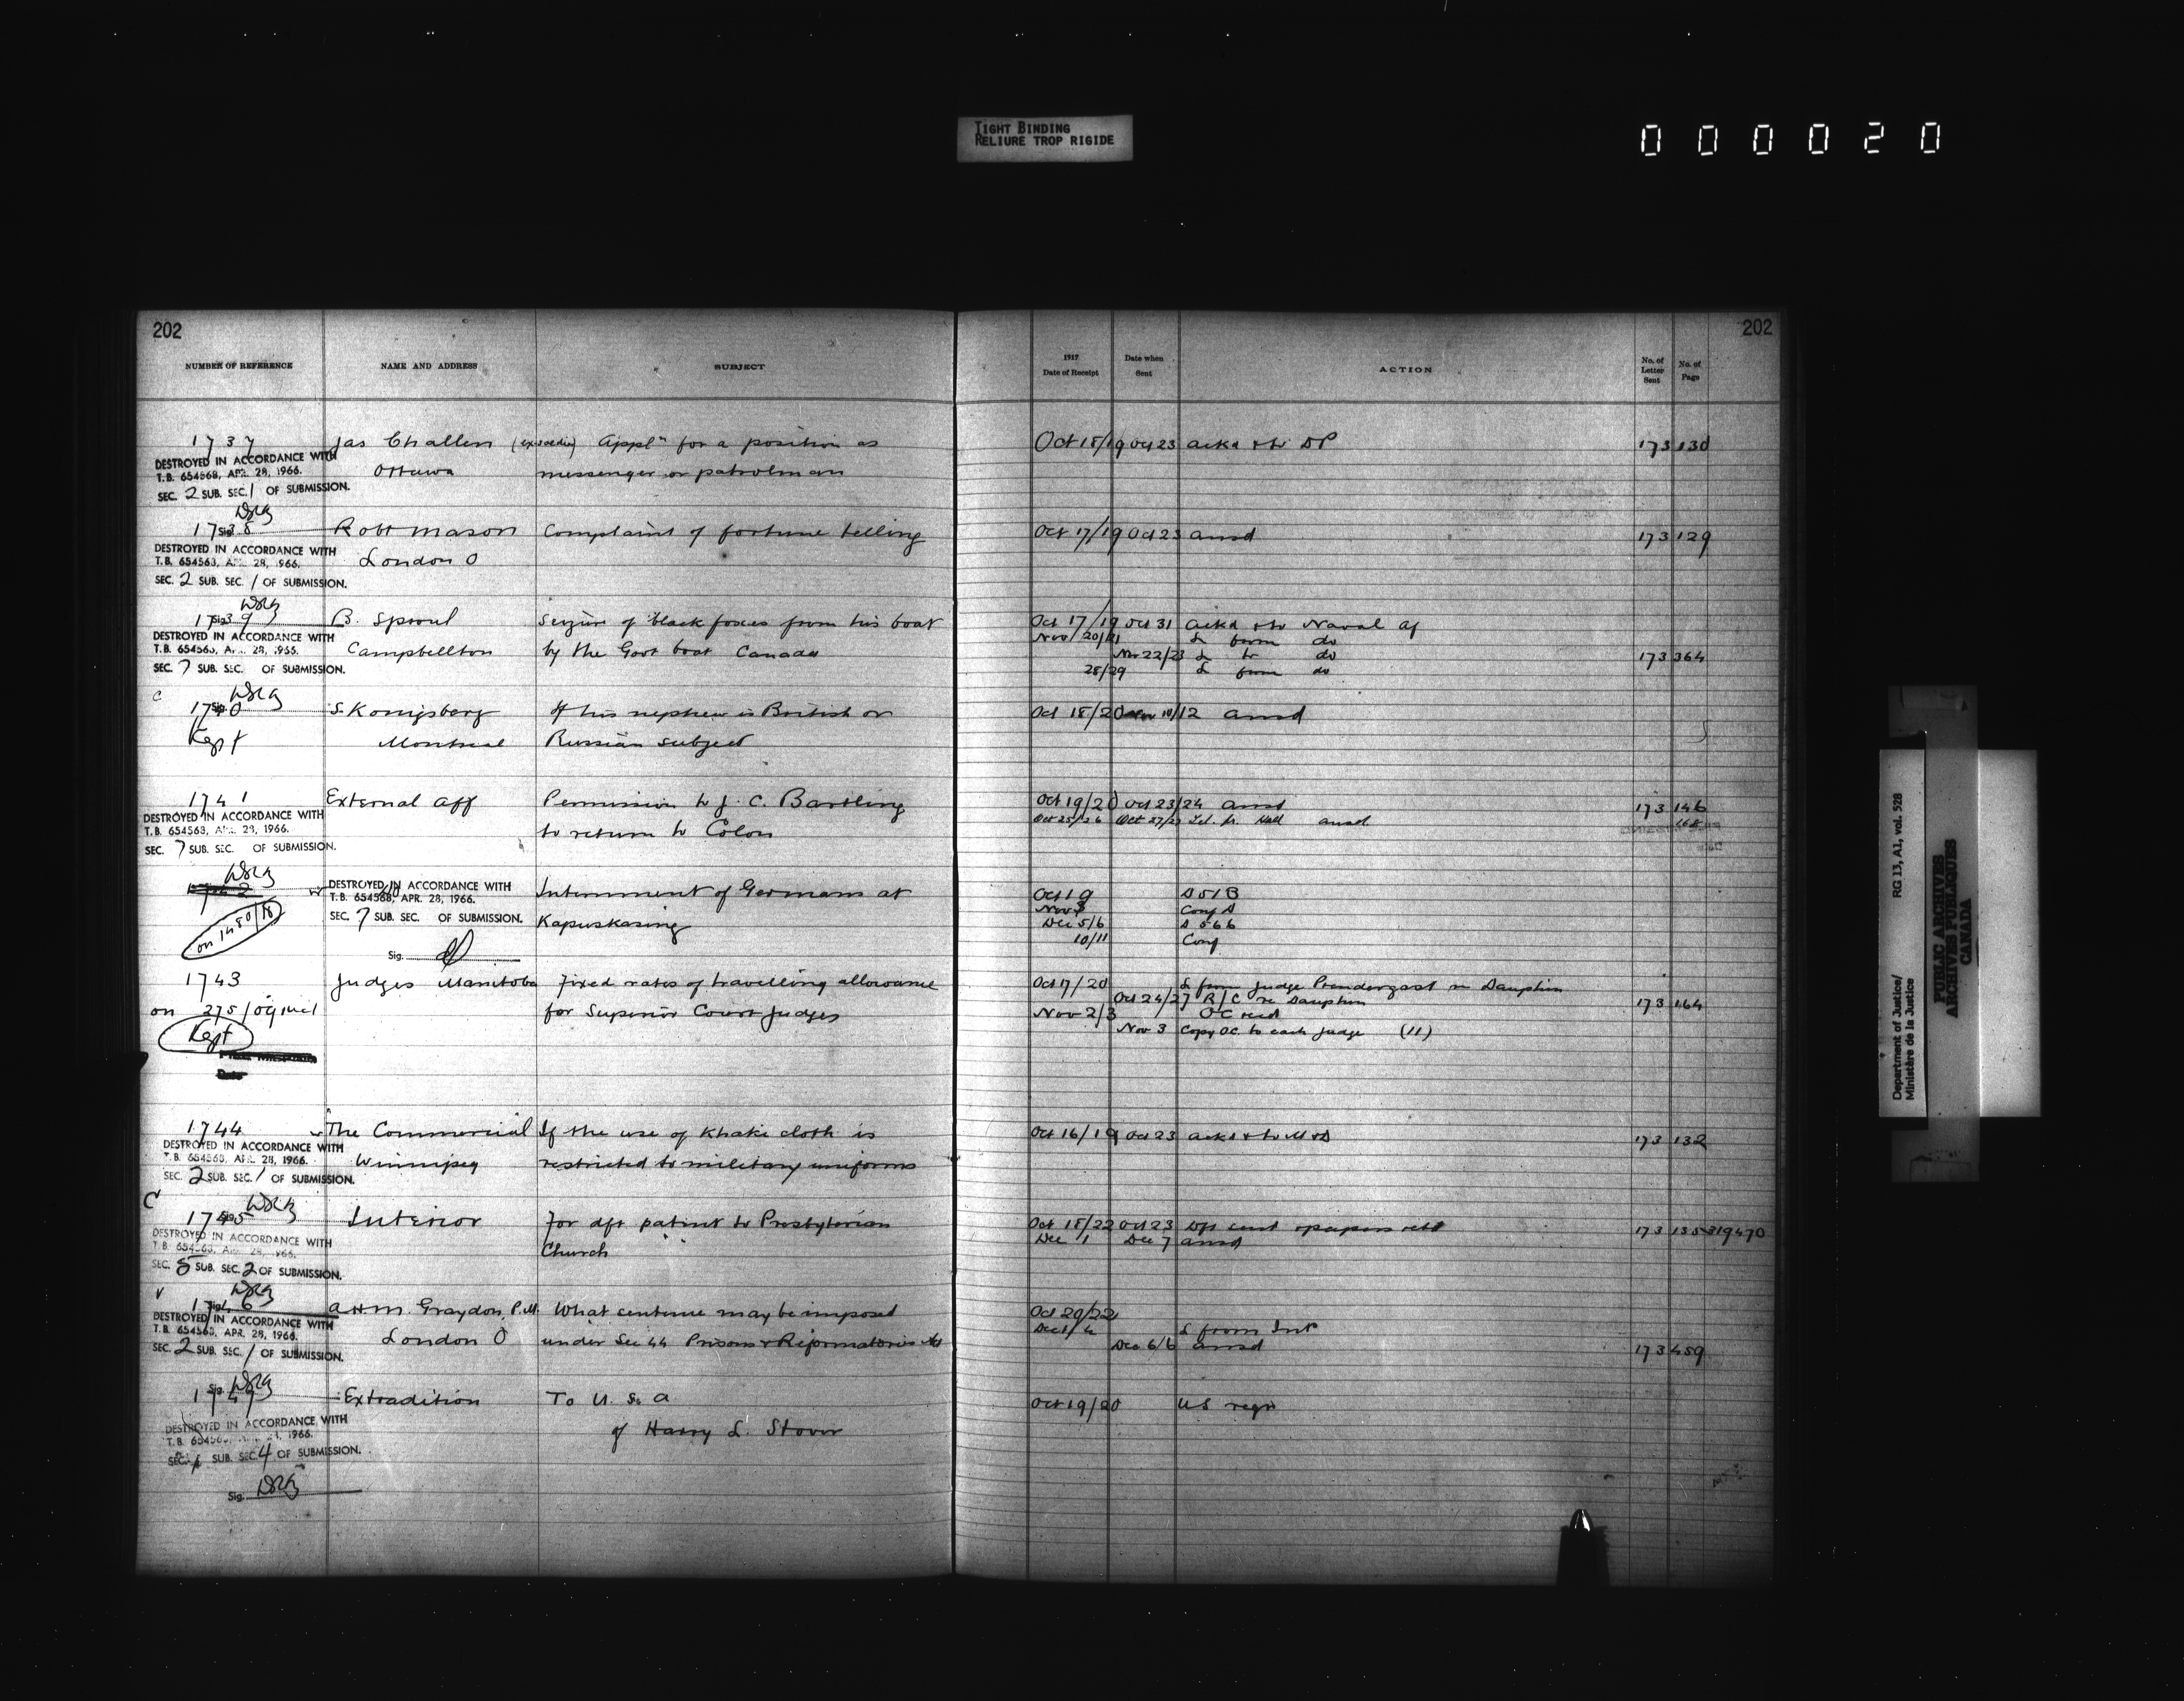 TIGHT BINDING
RELIURE TROP RIGIDE
000020
202
202
NUMBER OF REFERENCE NAME AND ADDRESS SUBJECT 1917 Date of Receipt Date when Sent ACTION No. of Letter Sent No. of Page
1737 Jas Challen (ex soldier) Appln for a position as Oct 18/19 Oct 23 ackd & to DP 173 130
DESTROYED IN ACCORDANCE WITH
T.B. 654568, APR. 28, 1966.
Ottawa messenger or patrolman
SEC. 2 SUB. SEC. 1 OF SUBMISSION.
1738 Sig. Robt Mason Complaint of fortune telling Oct 17/19 Oct 23 ansd 173 129
DESTROYED IN ACCORDANCE WITH
T.B. 654568, APR. 28, 1966.
London O
SEC. 2 SUB. SEC. 1 OF SUBMISSION.
1739 Sig. B. Sproul Seizure of black foxes from his boat Oct 17/19 Oct 31 ackd & to Naval af
DESTROYED IN ACCORDANCE WITH Nov 20/21 L from do
T.B. 654568, APR. 28, 1966.
Campbellton by the Govt boat Canada Nov 22/23 L to do 173 364
SEC. 7 SUB. SEC. OF SUBMISSION. 28/29 L from do
C
1740 Sig. S. Konigsberg If his nephew is British or Oct 18/20 Nov 10/12 ansd
Kept Montreal Russian subject
1741 External Aff Permission to J. C. Bartling Oct 19/20 Oct 23/24 ansd 173 146
DESTROYED IN ACCORDANCE WITH
T.B. 654568, APR. 28, 1966.
to return to Colon Oct 25/26 Oct 27/27 Tel. fr. ansd. 168
SEC. 7 SUB. SEC. OF SUBMISSION.
DESTROYED IN ACCORDANCE WITH Internment of Germans at Oct 19 D 51 B
T.B. 654568, APR. 28, 1966. Nov Conf D
SEC. 7 SUB. SEC. OF SUBMISSION. Kapuskasing Dec 5/6 D 566
on 1480/18 10/11 Conf
Sig.
1743 Judges Manitoba Fixed rates of travelling allowance Oct 17/20 L from Judge Prendergast re Dauphin
Oct 24/27 R/C re Dauphin 173 164
on 275/09 for Superior Court Judges Nov 2/3 OC recd
Kept Nov 3 Copy OC to each Judge (11)
1744 The Commercial If the use of Khaki cloth is Oct 16/19 Oct 23 ackd & to M & D 173 132
DESTROYED IN ACCORDANCE WITH
T.B. 654568, APR. 28, 1966.
Winnipeg restricted to military uniforms
SEC. 2 SUB. SEC. 1 OF SUBMISSION.
C
1745 Interior For dft patent to Presbyterian Oct 18/22 Oct 23 Dft sent & papers retd 173 135 319470
DESTROYED IN ACCORDANCE WITH Dec 1 Dec 7 ansd
T.B. 654568, APR. 28, 1966.
Church
SEC. 5 SUB. SEC. 2 OF SUBMISSION.
1746 Sig. A H M. Graydon, P.M. What sentence may be imposed Oct 20/22
DESTROYED IN ACCORDANCE WITH
T.B. 654568, APR. 28, 1966. L from Int
London O under Sec 44 Prisons & Reformatories Act Dec 6/6 ansd 173 459
SEC. 2 SUB. SEC. 1 OF SUBMISSION.
Sig. Extradition To U. S. A Oct 19/20 US reqn
DESTROYED IN ACCORDANCE WITH
T.B. 654568, APR. 28, 1966.
of Harry L. Stover
SEC. SUB. SEC. 4 OF SUBMISSION.
Sig.
Department of Justice/ RG 13, A1, vol. 528
Ministère de la Justice
PUBLIC ARCHIVES
ARCHIVES PUBLIQUES
CANADA